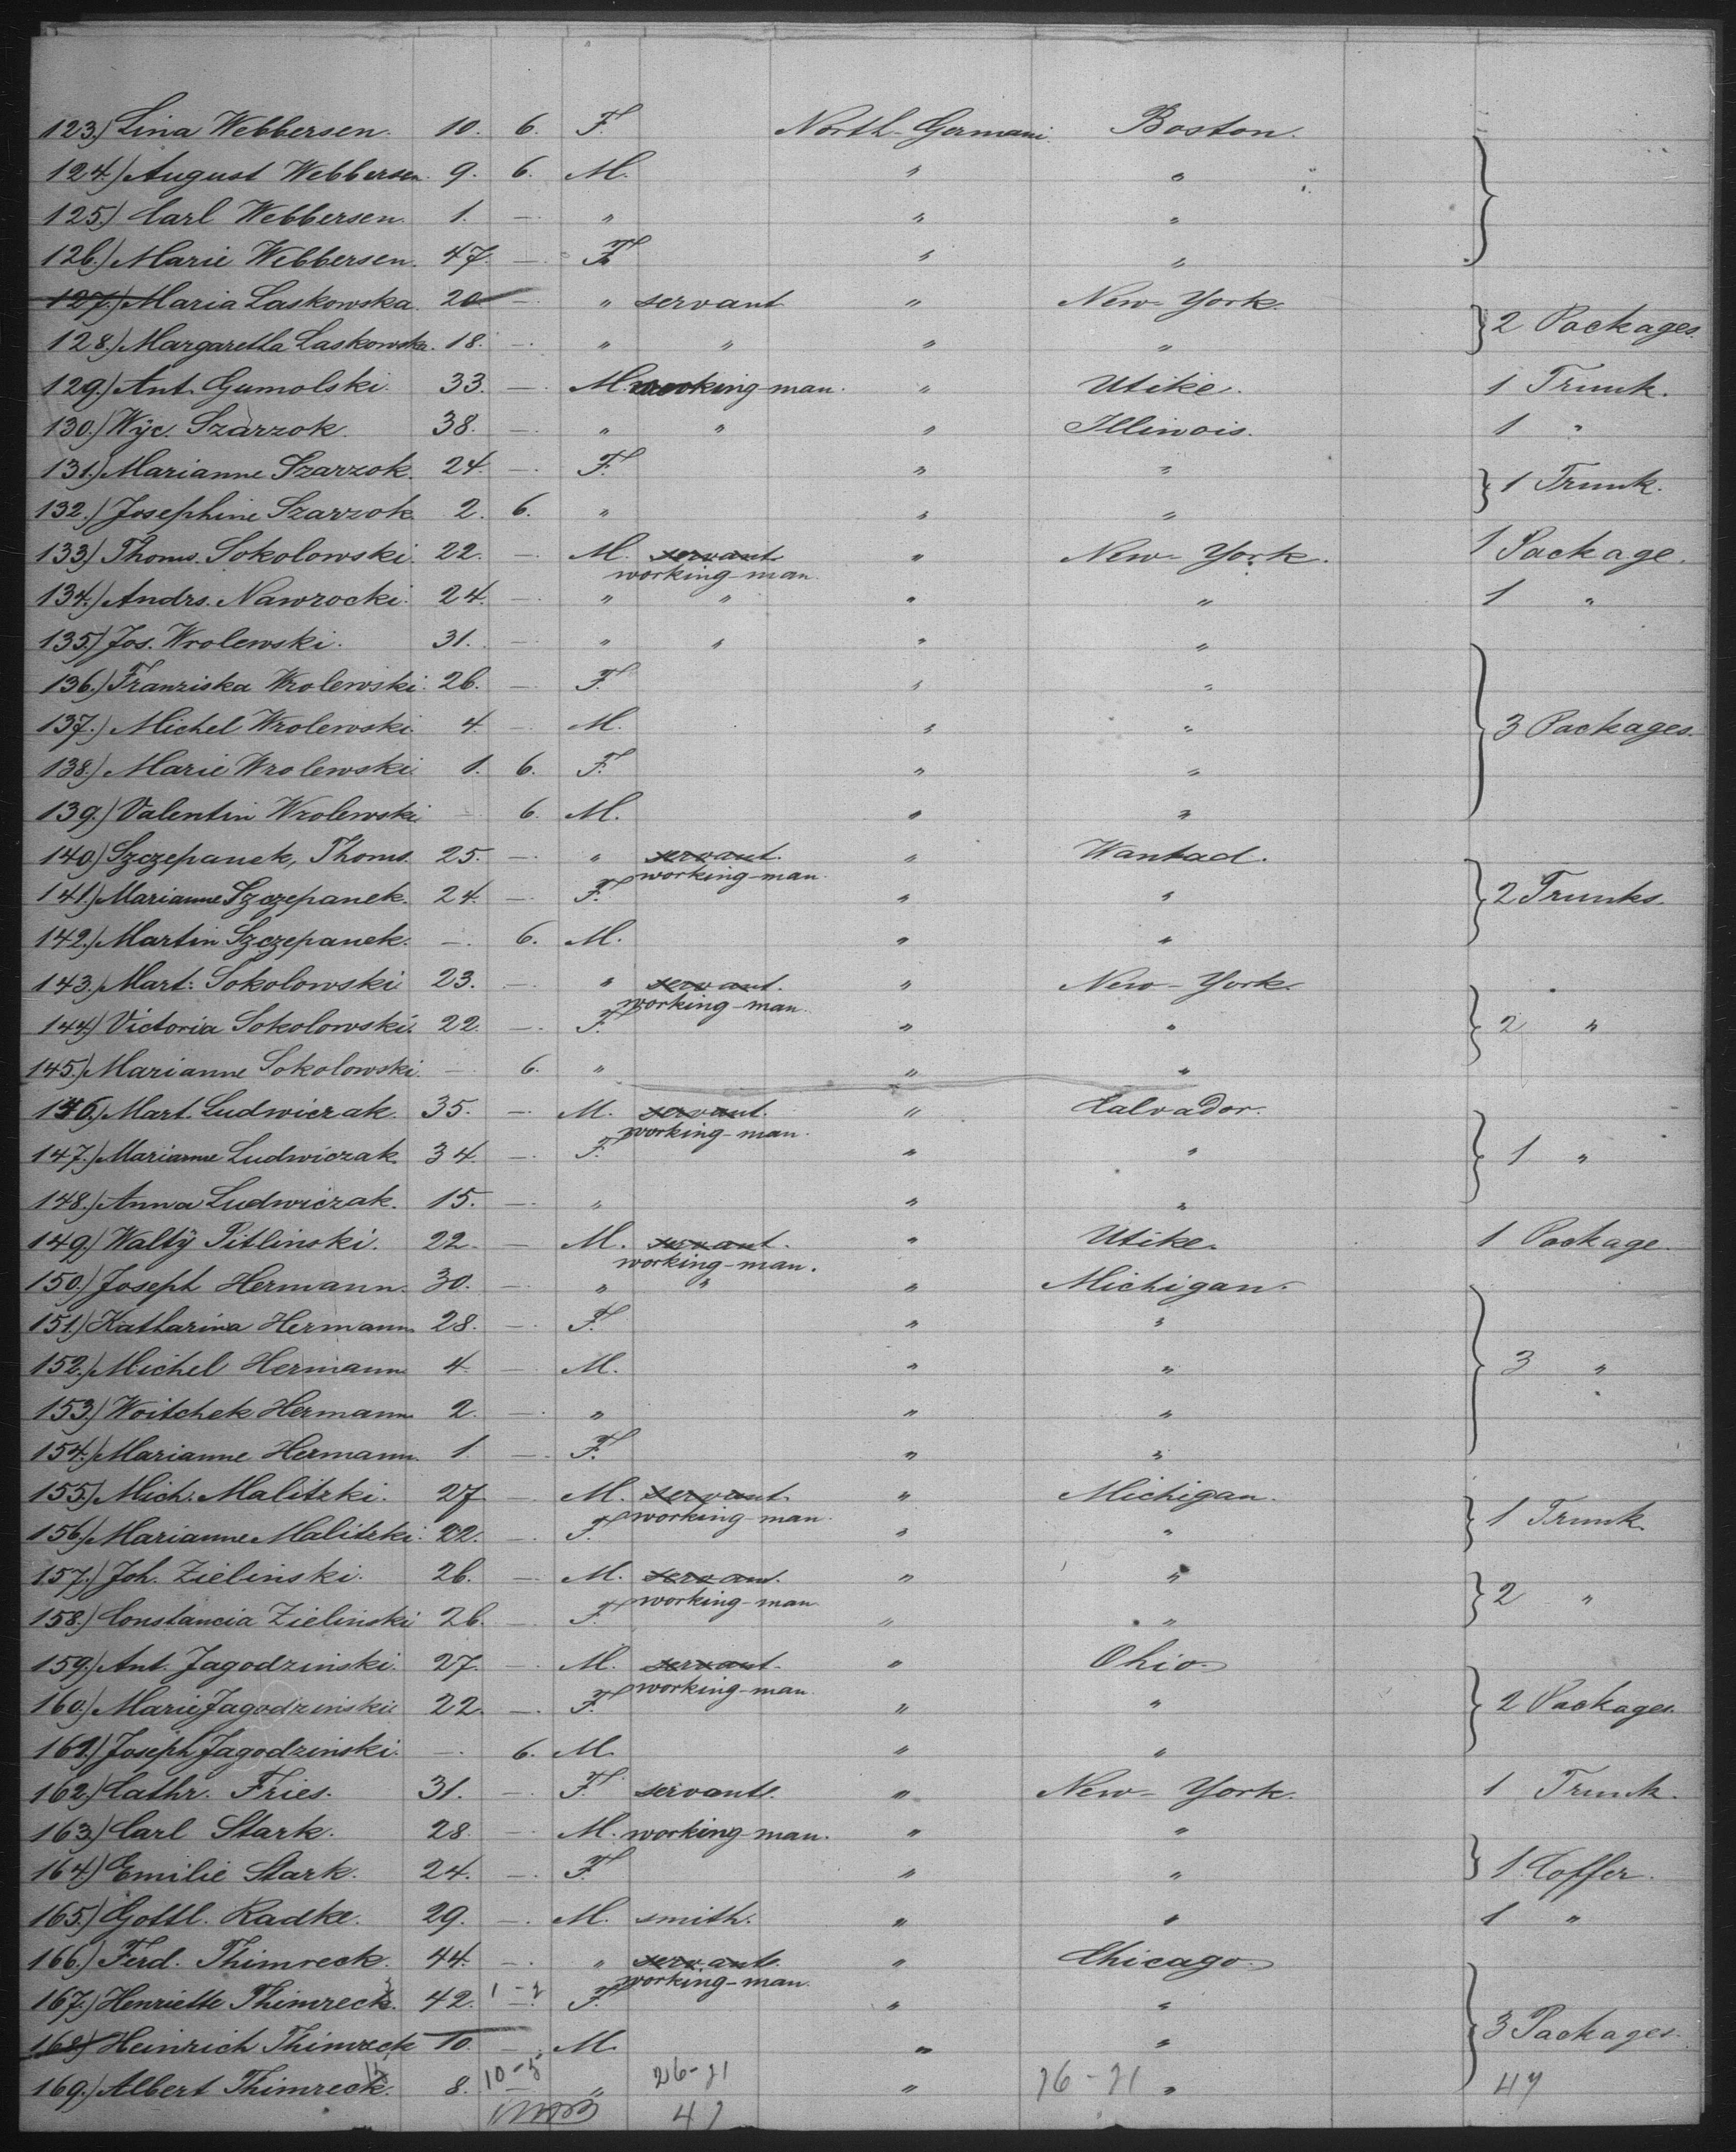 123.) Lina Webbersen. 10. 6. F. North-Germani. Boston.
124.) August Webbersen. 9. 6. M. " "
125.) Carl Webbersen. 1. — " " "
126.) Marie Webbersen. 47. — F. " "
127.) Maria Laskowska. 20 — " servant " New-York.
128.) Margaretha Laskowska. 18. — " " " " } 2 Packages.
129.) Ant. Gumolski. 33. — M. working-man. " Utike. 1 Trunk.
130.) Wÿc. Szarzok. 38. — " " " Illinois. 1 "
131.) Marianne Szarzok. 24. — F. " " } 1 Trunk.
132.) Josephine Szarzok. 2. 6. " " "
133.) Thoms. Sokolowski. 22. — M. servant. " New-York. 1 Package.
working-man.
134.) Andrs. Nawrocki. 24. — " " " " 1 "
135.) Jos. Wrolewski. 31. — " " " "
136.) Franziska Wrolewski. 26. — F. " "
137.) Michel Wrolewski. 4. — M. " " } 3 Packages.
138.) Marie Wrolewski. 1. 6. F. " "
139.) Valentin Wrolewski. — 6. M. " "
140.) Szczepanek, Thoms. 25. — " servant. " Wantad.
working-man.
141.) Marianne Szczepanek. 24. — F. " " } 2 Trunks.
142.) Martin Szczepanek. — 6. M. " "
143.) Mart: Sokolowski 23. — " servant. " New-York.
working-man.
144.) Victoria Sokolowski. 22. — F. " " } 2 "
145.) Marianne Sokolowski. — 6. " " "
146.) Mart. Ludwiczak. 35. — M. servant. " Calvador.
working-man.
147.) Marianne Ludwiczak. 34. — F. " " } 1 "
148.) Anna Ludwiczak. 15. — " " "
149.) Waltÿ Pitlinski. 22. — M. servant. " Utike. 1 Package.
working-man.
150.) Joseph Hermann. 30. — " " " Michigan.
151.) Katharina Hermann 28. — F. " "
152.) Michel Hermann 4. — M. " " } 3 "
153.) Woitchek Hermann 2. — " " "
154.) Marianne Hermann. 1. — F. " "
155.) Mich. Malitzki. 27 — M. servant. " Michigan.
working-man.
156.) Marianne Malitzki. 22. — F. " " } 1 Trunk.
157.) Joh. Zielinski. 26. — M. servant. " "
working-man.
158.) Constancia Zielinski 26. — F. " " } 2 "
159.) Ant. Jagodzinski. 27. — M. servant. " Ohio.
working-man.
160.) Marie Jagodzinski 22. — F. " " } 2 Packages.
161.) Joseph Jagodzinski. — 6. M. " "
162.) Cathr. Fries. 31. — F. servant. " New-York. 1 Trunk.
163.) Carl Stark. 28. — M. working-man. " "
164.) Emilie Stark. 24. — F. " " } 1 Coffer.
165.) Gottl. Radke. 29. — M. smith. " " 1 "
166.) Ferd. Thimreck. 44. — " servant. " Chicago.
working-man.
167.) Henriette Thimreck. 42. — F. " "
168.) Heinrich Thimreck 10. — M. " " } 3 Packages.
169.) Albert Thimreck. 8. 10-5 " 26-21 " 26-21 " 47
47